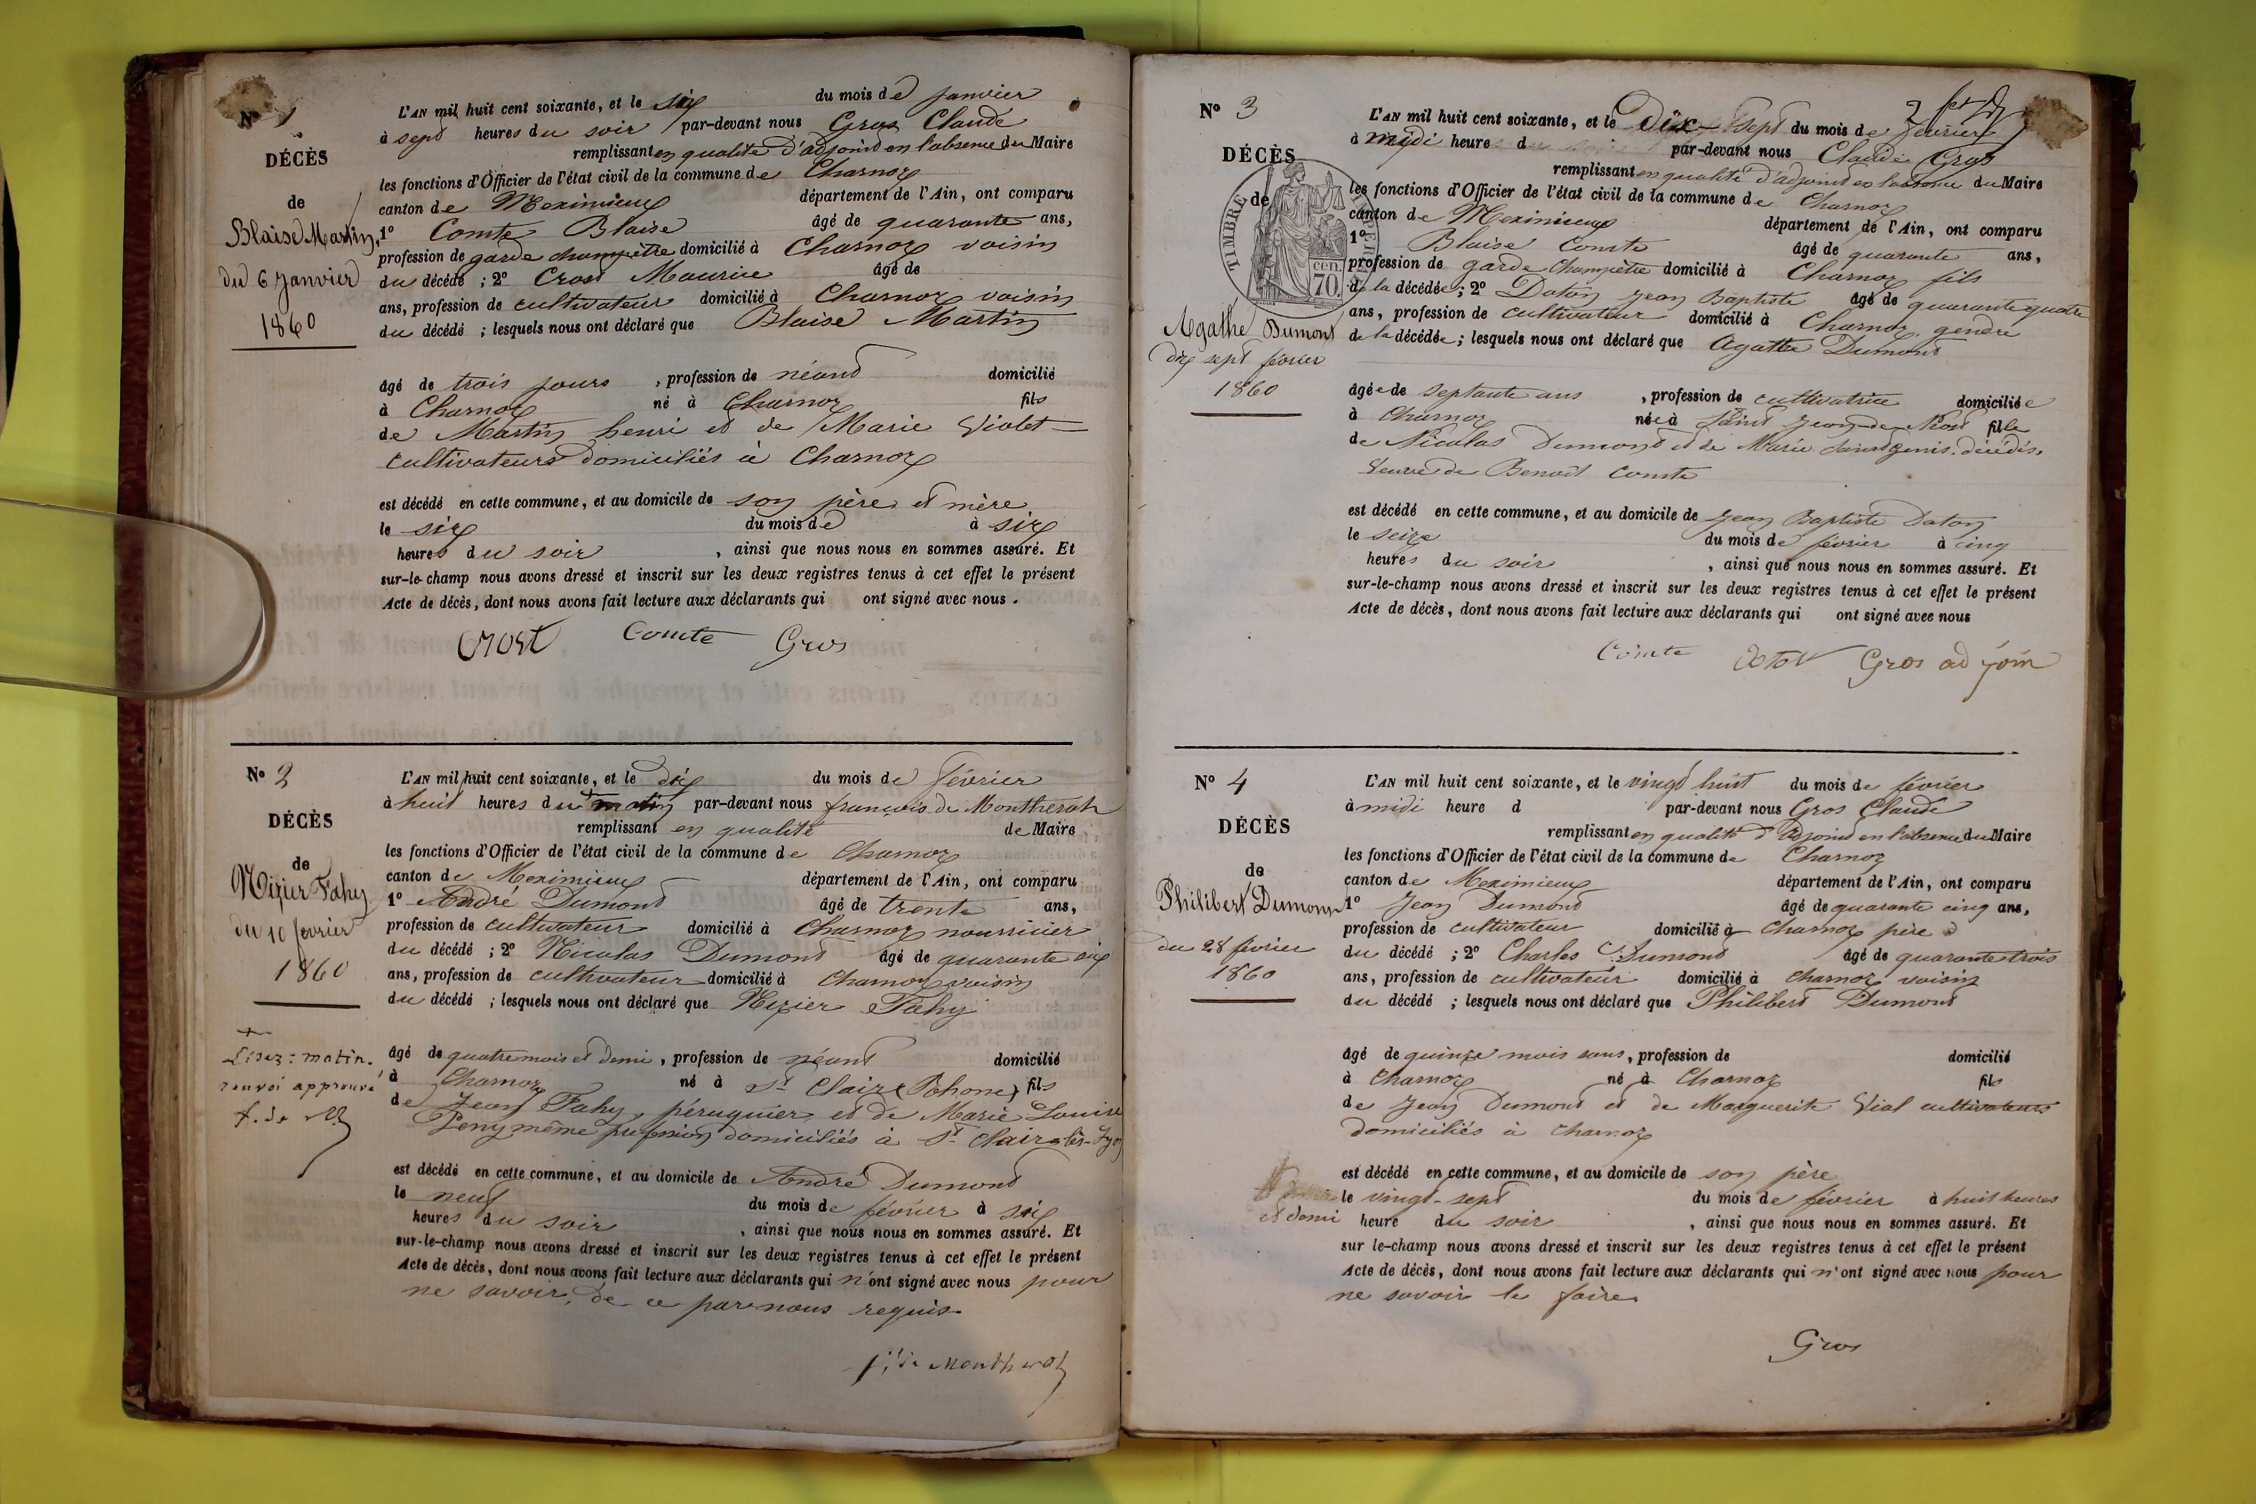 N° 1
DÉCÈS
de
Blaise Martin
du 6 Janvier
1860
L'AN mil huit cent soixante, et le six du mois de janvier
à sept heures du soir par-devant nous Gros Claude
remplissant en qualité d'adjoind en l'absence du Maire
les fonctions d'Officier de l'état civil de la commune de Charnoz
canton de Meximieux département de l'Ain, ont comparu
1° Comte Blaise âgé de quarante ans,
profession de garde champêtre domicilié à Charnoz voisin
du décédé ; 2° Crost Maurice âgé de
ans, profession de cultivateur domicilié à Charnoz voisin
du décédé ; lesquels nous ont déclaré que Blaise Martin
âgé de trois jours , profession de néand domicilié
à Charnoz né à Charnoz fils
de Martin henri et de Marie Violet
cultivateurs domiciliés à Charnoz
est décédé en cette commune, et au domicile de son père et mère
le six du mois de à six
heures du soir , ainsi que nous nous en sommes assuré. Et
sur-le-champ nous avons dressé et inscrit sur les deux registres tenus à cet effet le présent
Acte de décès, dont nous avons fait lecture aux déclarants qui ont signé avec nous .
Crost Comte Gros
N° 2
DÉCÈS
de
Nizier Fahy
du 10 fevrier
1860
Lisez : matin.
renvoi approuvé
L'AN mil huit cent soixante, et le dix du mois de février
à huit heures du matin par-devant nous françois de Montherot
remplissant en qualité de Maire
les fonctions d'Officier de l'état civil de la commune de Charnoz
canton de Meximieux département de l'Ain, ont comparu
1° André Dumond âgé de trente ans,
profession de cultivateur domicilié à Charnoz nourricier
du décédé ; 2° Nicolas Dumond âgé de quarante six
ans, profession de cultivateur domicilié à Charnoz voisin
du décédé ; lesquels nous ont déclaré que Nizier Fahy
âgé de quatre mois et demi , profession de néant domicilié
à Charnoz né à St Clair (Rhone) fils
de Jean Fahy, péruquier et de Marie Louise
même profession domiciliés à St Clair-lès-Lyon
est décédé en cette commune, et au domicile de André Dumond
le neuf du mois de février à six
heures du soir , ainsi que nous nous en sommes assuré. Et
sur-le-champ nous avons dressé et inscrit sur les deux registres tenus à cet effet le présent
Acte de décès, dont nous avons fait lecture aux déclarants qui n'ont signé avec nous pour
ne savoir, de ce par nous requis.
f. de Montherot
N° 3
DÉCÈS
de
TIMBRE IMPERIAL
70 cen.
Agathe Dumont
dix sept février
1860
L'AN mil huit cent soixante, et le Dix-sept du mois de février
à midi heure d par-devant nous Claude Gros
remplissant en qualité d'adjoind en l'absence du Maire
les fonctions d'Officier de l'état civil de la commune de Charnoz
canton de Meximieux département de l'Ain, ont comparu
1° Blaise Comte âgé de quarante ans,
profession de garde Champêtre domicilié à Charnoz fils
de la décédée ; 2° Daton Jean Baptiste âgé de quarante quatre
ans, profession de cultivateur domicilié à Charnoz gendre
de la décédée ; lesquels nous ont déclaré que Agathe Dumond
âgée de septante ans , profession de cultivatrice domiciliée
à Charnoz née à Saint Jean de Niost fille
de Nicolas Dumond et de Marie Saintgenis. décédés.
Veuve de Benoit Comte
est décédé en cette commune, et au domicile de Jean Baptiste Daton
le seize du mois de février à cinq
heures du soir , ainsi que nous nous en sommes assuré. Et
sur-le-champ nous avons dressé et inscrit sur les deux registres tenus à cet effet le présent
Acte de décès, dont nous avons fait lecture aux déclarants qui ont signé avec nous
Comte Gros adjoin
N° 4
DÉCÈS
de
Philibert Dumond
du 28 février
1860
L'AN mil huit cent soixante, et le vingt huit du mois de février
à midi heure d par-devant nous Gros Claude
remplissant en qualité d'adjoind en l'absence du Maire
les fonctions d'Officier de l'état civil de la commune de Charnoz
canton de Meximieux département de l'Ain, ont comparu
1° Jean Dumond âgé de quarante cinq ans,
profession de cultivateur domicilié à Charnoz père
du décédé ; 2° Charles Dumond âgé de quarante trois
ans, profession de cultivateur domicilié à Charnoz voisin
du décédé ; lesquels nous ont déclaré que Philibert Dumond
âgé de quinze mois sans , profession de domicilié
à Charnoz né à Charnoz fils
de Jean Dumond et de Marguerite Vial cultivateurs
domiciliés à Charnoz
est décédé en cette commune, et au domicile de son père
le vingt-sept du mois de février à huit heures
et demi heure du soir , ainsi que nous nous en sommes assuré. Et
sur le-champ nous avons dressé et inscrit sur les deux registres tenus à cet effet le présent
Acte de décès, dont nous avons fait lecture aux déclarants qui n'ont signé avec nous pour
ne savoir le faire
Gros